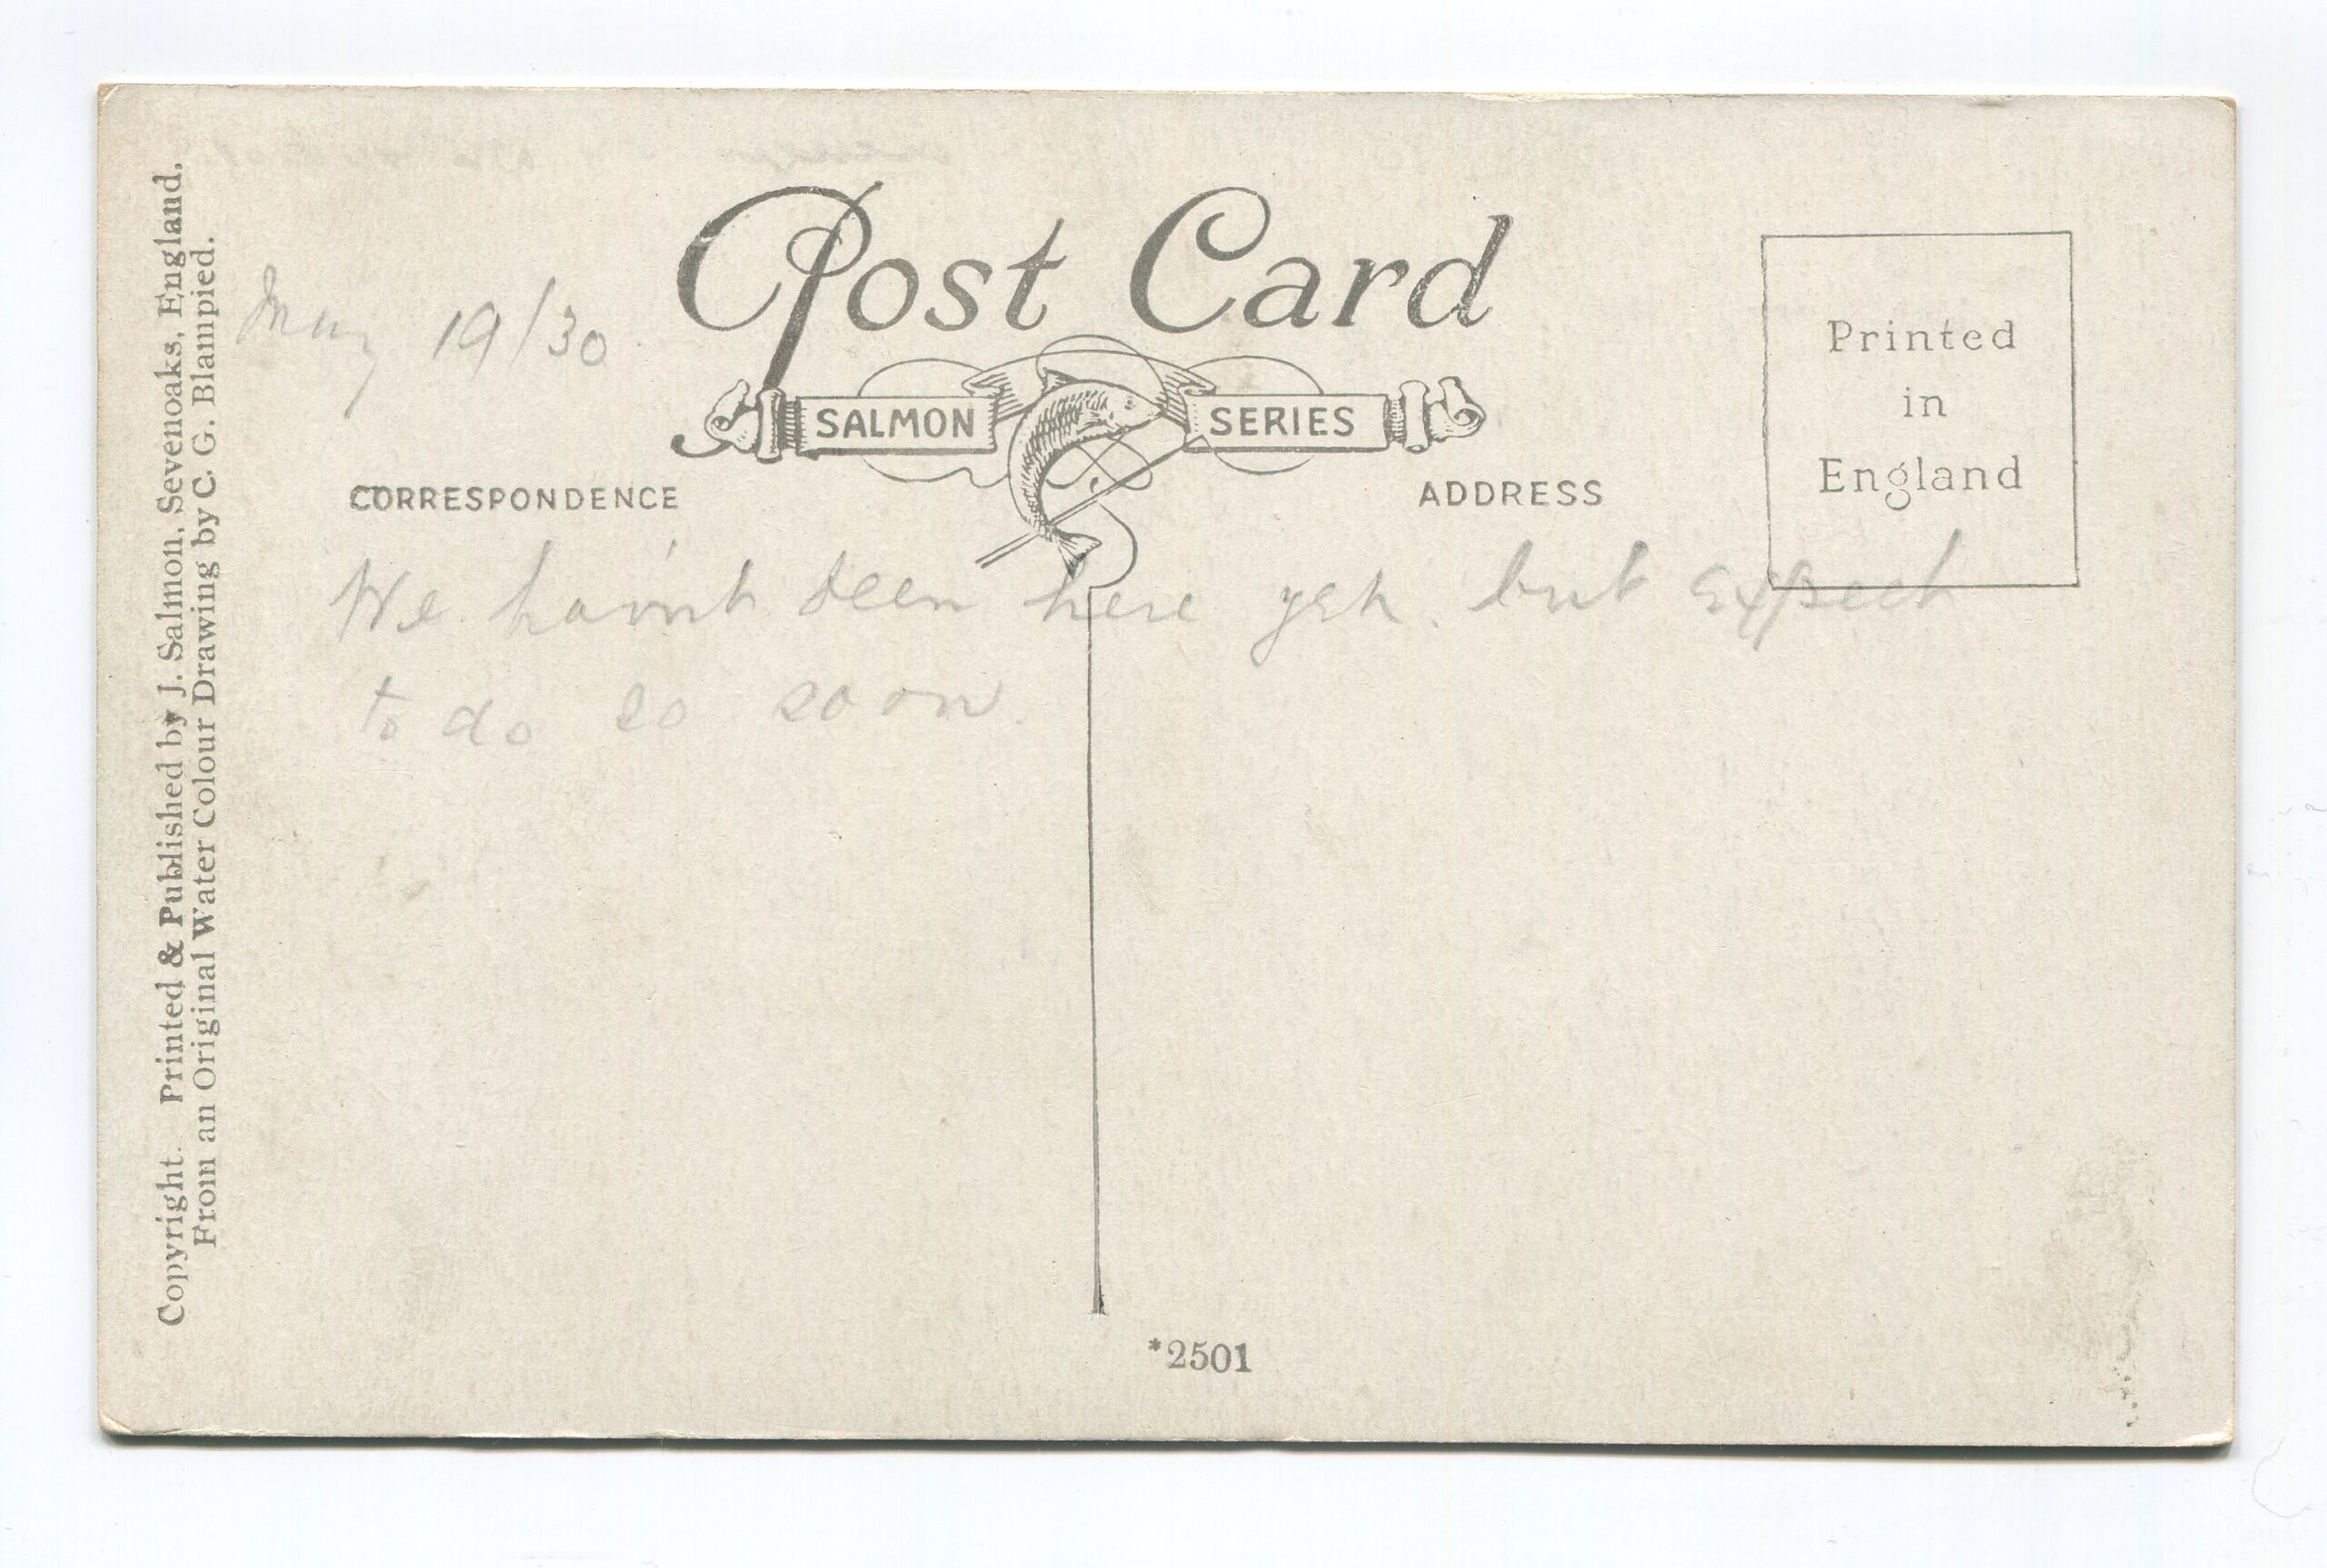 Copyright. Printed & Published by J. Salmon, Sevenoaks, England.
From an Original Water Colour Drawing by C. G. Blampied.
Post Card
May 19/30
SALMON SERIES
Printed
in
England
CORRESPONDENCE
ADDRESS
We hav'nt been here yet. but expect
to do so soon.
*2501